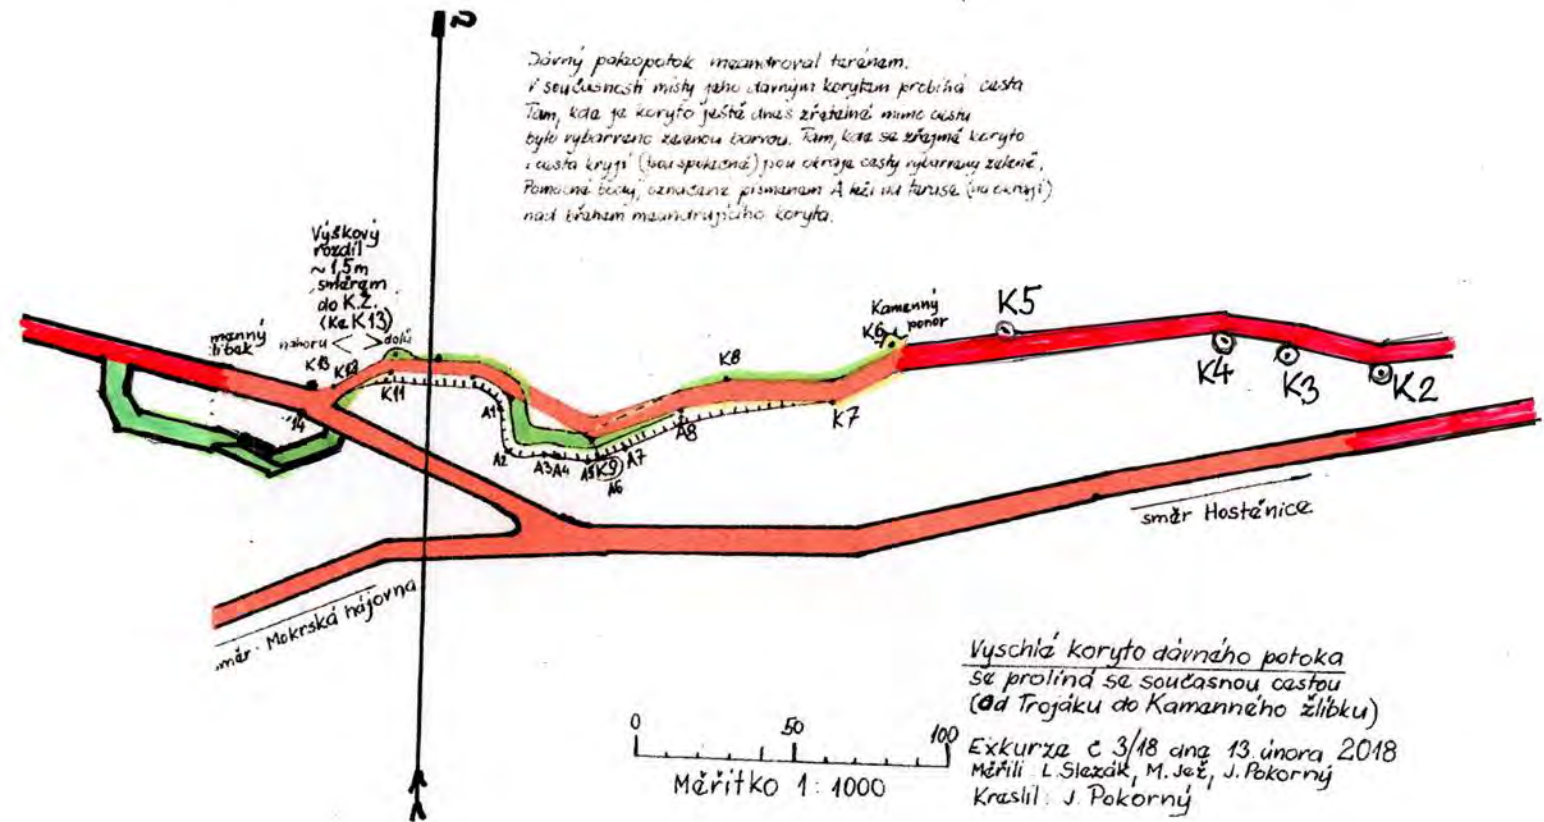 Dávný paleopotok meandroval terénem.
V současnosti místy jeho dávným korytem probíhá cesta
Tam, kde je koryto ještě dnes zřetelné mimo cestu
bylo vybarveno zelenou barvou. Tam, kde se zřejmě koryto
i cesta kryjí (jsou společné) jsou okraje cesty vybarveny zeleně.
Pomocné body, označené písmenem A leží na terase (na okraji)
nad břehem meandrujícího koryta.
Výškový
rozdíl
~ 1,5 m
směrem
do K.Ž.
(Ke K13)
nahoru < > dolů
Kamenný
ponor
K6
K5
K4
K3
K2
K13
K12
K11
14
K8
K7
A1
A2
A3
A4
A5
(K9)
A6
A7
A8
směr Hostěnice
směr Mokrská hájovna
0 50 100
Měřítko 1 : 1000
Vyschlé koryto dávného potoka
se prolíná se současnou cestou
(Od Trojáku do Kamenného žlíbku)
Exkurze č 3/18 dne 13. února 2018
Měřili L. Slezák, M. Jež, J. Pokorný
Kreslil: J. Pokorný